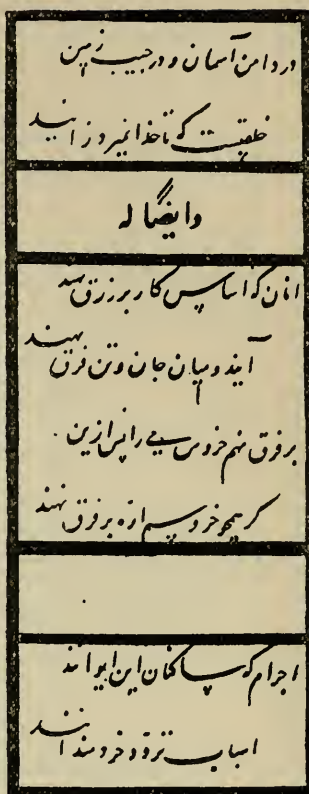 در دامن آسمان و در جیب زمین
خلقیست که تا خدا نمیرد زایند
وایضاً له
انان که اساس کار بر زرق نهند
آیند و میان جان و تن فرق نهند
بر فرق نهم خروس می را پس ازین
گر همچو خروسم اره بر فرق نهند
اجرام که ساکنان این ایوانند
اسباب تردد خردمندانند